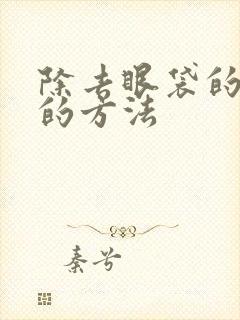 除去眼袋的
的方法
秦兮